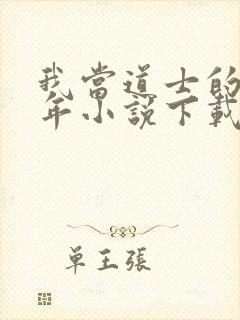 我當道士的
年小說下載
单王張